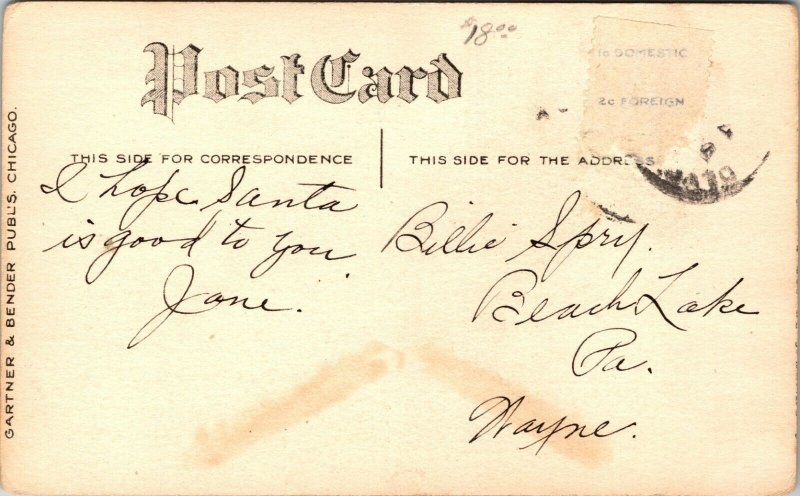 $18.00
Post Card
1c DOMESTIC
2c FOREIGN
THIS SIDE FOR CORRESPONDENCE
THIS SIDE FOR THE ADDRESS
I hope Santa
is good to you
Jane.
Billie Spry.
Beach Lake
Pa.
Wayne.
GARTNER & BENDER PUBL'S. CHICAGO.